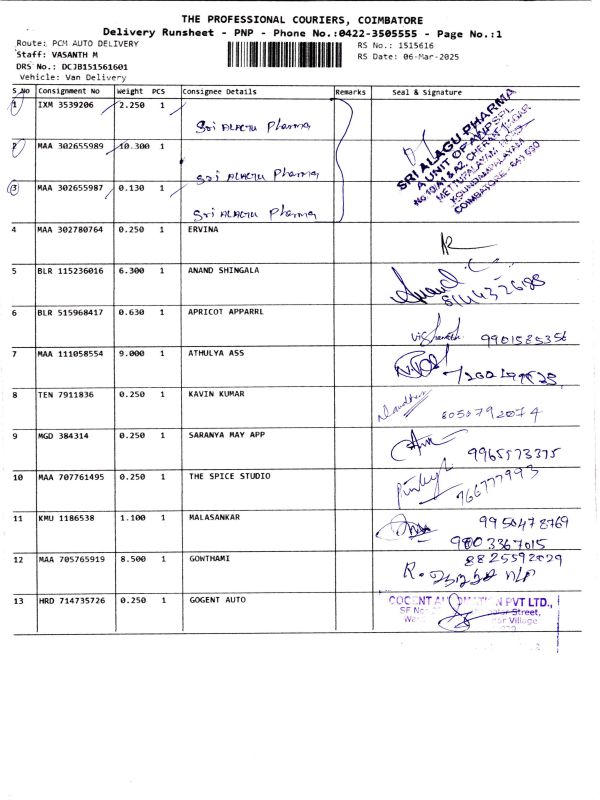 THE PROFESSIONAL COURIERS, COIMBATORE
Delivery Runsheet - PNP - Phone No.:0422-3505555 - Page No.:1
Route: PCM AUTO DELIVERY
RS No.: 1515616
Staff: VASANTH M
RS Date: 06-Mar-2025
DRS No.: DCJB151561601
Vehicle: Van Delivery
S No Consignment No Weight PCS Consignee Details Remarks Seal & Signature
1 IXM 3539206 2.250 1 Sri ALAGU Pharma
SRI ALAGU PHARMA
A UNIT OF ANPSPL
No.10/A1 & A2, CHERAN NAGAR
METTUPALAYAM
KOUNDAMPALAYAM
COIMBATORE - 641 030
2 MAA 302655989 10.300 1 Sri ALAGU Pharma
3 MAA 302655987 0.130 1 Sri ALAGU Pharma
4 MAA 302780764 0.250 1 ERVINA
5 BLR 115236016 6.300 1 ANAND SHINGALA
Anand
6 BLR 515968417 0.630 1 APRICOT APPARRL
9901585356
7 MAA 111058554 9.000 1 ATHULYA ASS
8 TEN 7911836 0.250 1 KAVIN KUMAR
6050792074
9 MGD 384314 0.250 1 SARANYA MAY APP
9965573375
10 MAA 707761495 0.250 1 THE SPICE STUDIO
766777993
11 KMU 1186538 1.100 1 MALASANKAR
9950478769
9803367015
12 MAA 705765919 8.500 1 GOWTHAMI
8825592029
13 HRD 714735726 0.250 1 GOGENT AUTO
COGENT PVT LTD.,
Street,
Village